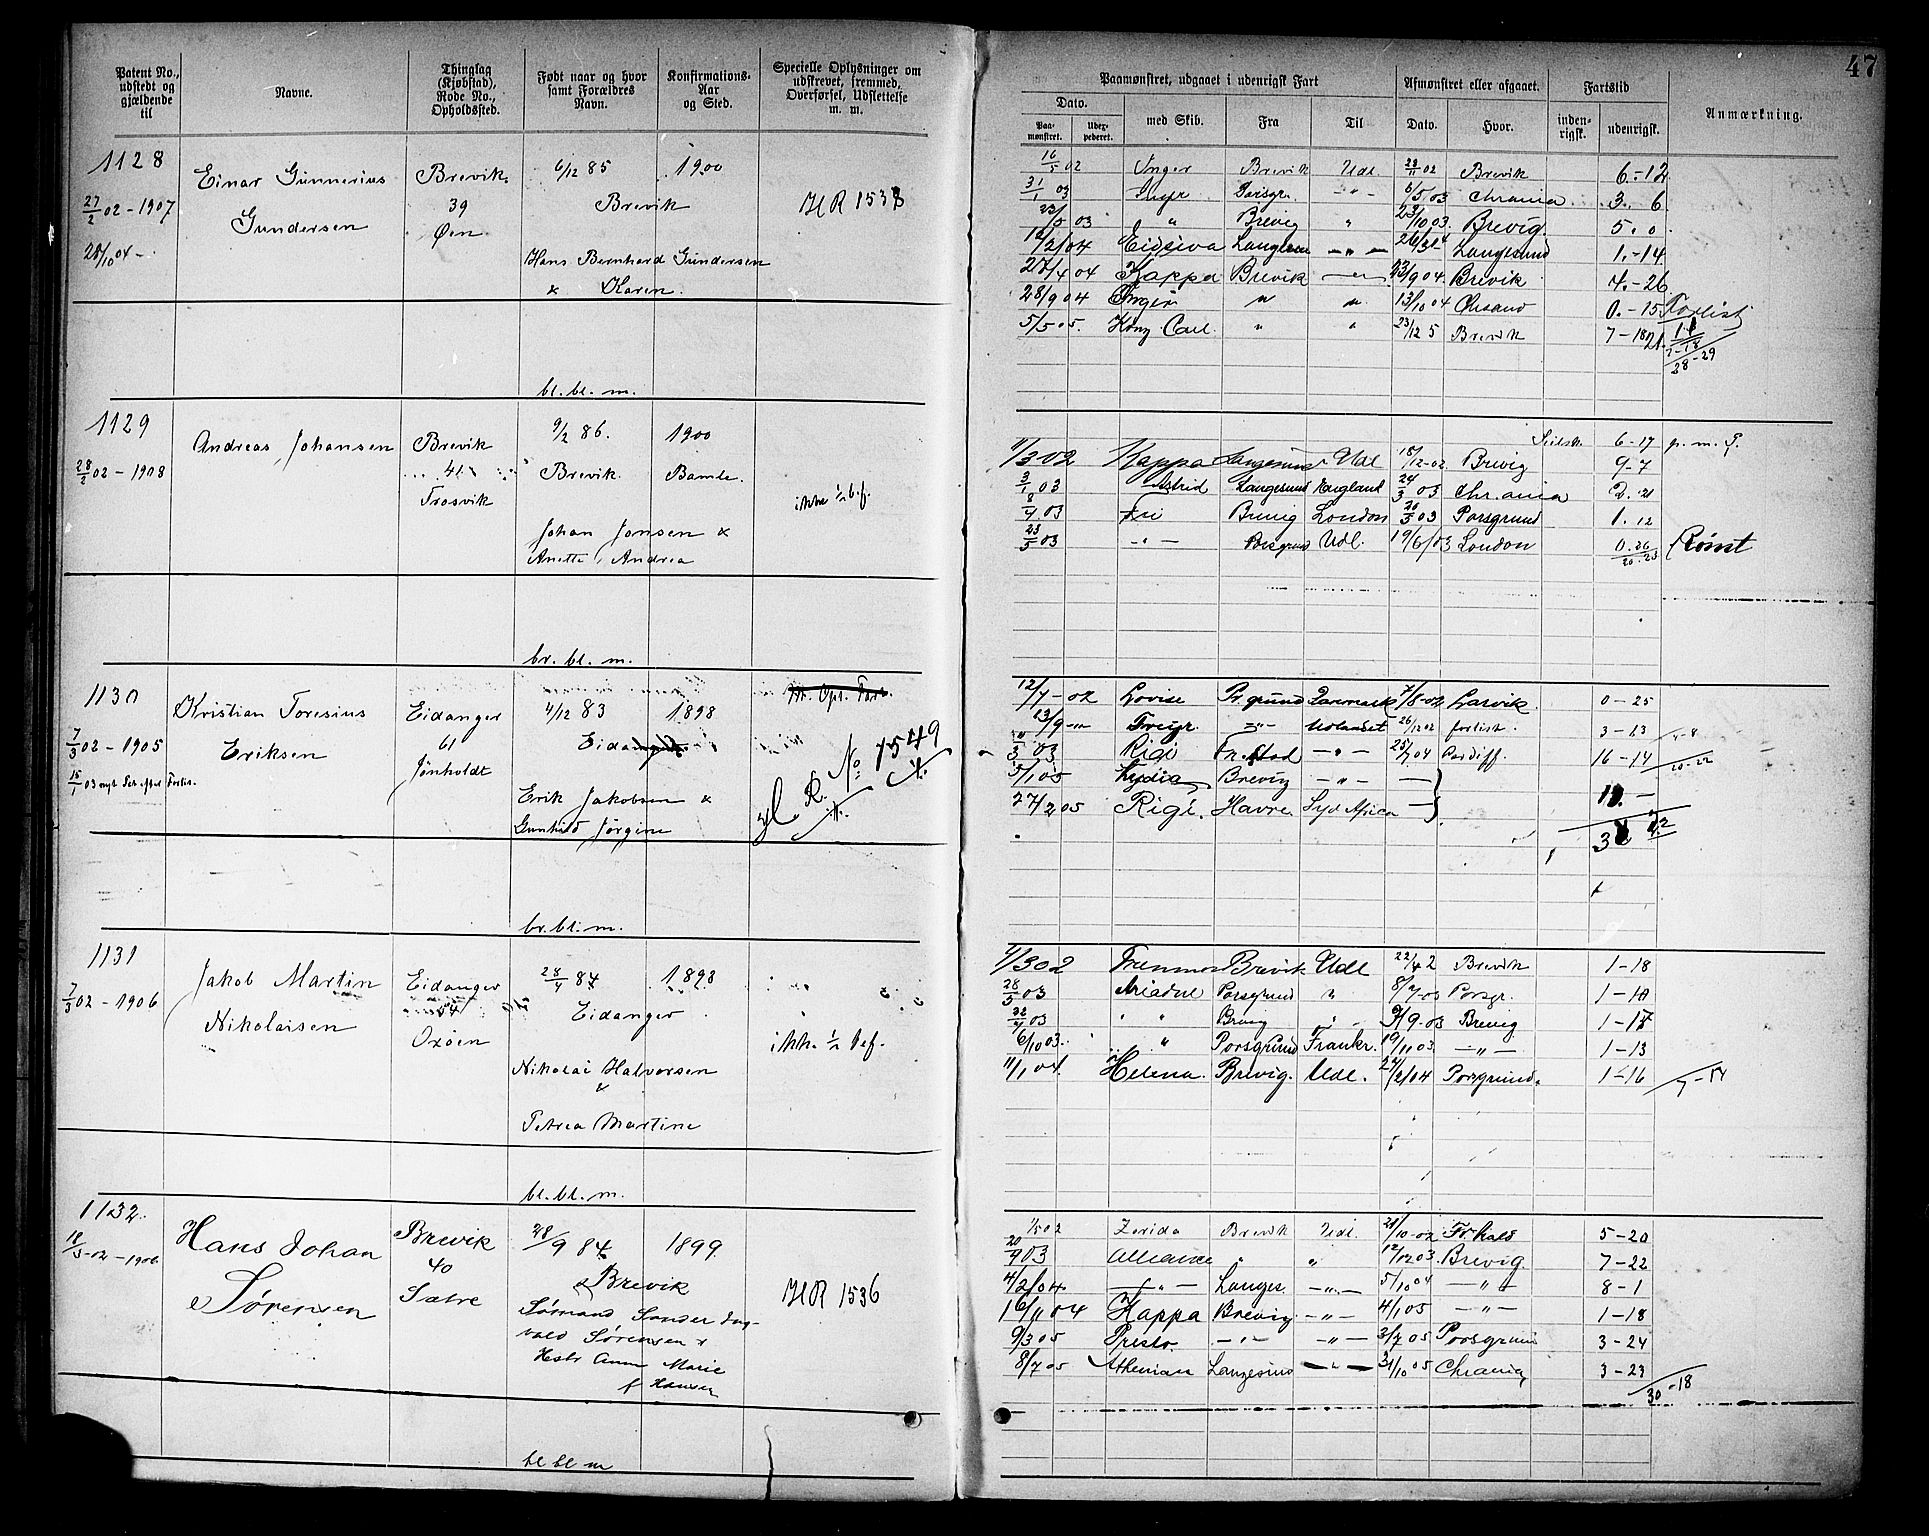 47
Patent No., udstedt og gjældende til
Navne.
Thinglag (Kjøbstad), Rode No., Opholdssted.
Født naar og hvor samt Forældres Navn.
Konfirmations-Aar og Sted.
Specielle Oplysninger om udskrevet, fremmed, Overførsel, Udslettelse m. m.
Paamønstret, udgaaet i udenrigsk Fart
Afmønstret eller afgaaet.
Fartstid
Anmærkning.
Dato.
Paa-mønstret.
Udex-pederet.
med Skib.
Fra
Til
Dato.
Hvor.
inden-rigsk.
udenrigsk.
1128
27/2 02 - 1907
28/10 04 -
Einar Gunnerius
Gundersen
Brevik.
39
Øen
6/12 85
Brevik
Hans Bernhard Gundersen
& Karen.
1900
bl. bl. m.
16/5 02 Inger Brevik Udl. 28/11 02 Brevik 6.-12
31/1 03 Porsgr. -"- 6/5 03 Chrania 3. 6
23/5 03 " Brevig " 23/10 03 Brevig. 5. 0
12/2 04 Eidsiva -"- Langesund 1.-14
27/4 04 Kappa Brevik -"- 22/9 04 Brevik 4.-26
28/9 04 Inger " " 13/10 04 Chrsand 0.-15 Forlist
5/5 05. Kong Carl " " 23/12 5 Brevik 7-18
28-29
1129
28/2 02 - 1908
Andreas Johansen
Brevik
41
Trosvik
9/2 86.
Brevik.
Johan Jonsen &
Anette Andrea
1900
Bamle.
ikke 1/2 bef.
br. bl. m.
6-17 p. m. P.
11/3 02 Kappa Langesund Udl 18/12-02 Brevig 9-7
3/1 03 Astrid Langesund England 24/3 03 Chr.ania 2. 21
8/4 03 Fri Brevig London 20/5 03 Porsgrund 1. 12
23/5 03 -"- Porsgrund Udl. 19/6/03 London 0.26 Rømt
20.23
1130
7/3 02 - 1905
15/1 03 nyt
Kristian Toresius
Eriksen
Eidanger
61
Jønholdt
4/12 83
Eidanger
Erik Jakobsen &
Gunhild Jørgine
1898
No. 1549
br. bl. m.
12/7-02 Lovise Pr.grund Danmark 7/8-02 Larvik. 0-25
13/9 -"- Freyr -"- Udlandet 26/12 02 forlist. 3-13 4-8
3/3 03 Rigi Fr.stad -"- 25/7 04 Cardiff. 16-14 20-22
5/1 05 Lydia Brevig -"- -
27/2 05 Rigi. Havre Syd Africa -
1131
7/3 02 - 1906
Jakob Martin
Nikolaisen
Eidanger
54
Oxøen
28/4 84
Eidanger
Nikolai Halvorsen
&
Petrea Martine
1898
ikke 1/2 bef.
bl. bl. m.
11/3 02 Brevik Udl 22/4 2 Brevik 1-18
28/5 03 Ariadne Porsgrund " 8/7-03 Porsgr. 1-10
" Brevig " 9/9-03 Brevig 1-17
6/10 03. " Porsgrund Frankr. 19/11 03. -"- 1-13
11/1 04. Helena. Brevig. Udl. 27/2 04 Porsgrund. 1-16
7-14
1132.
18/3-02-1906
Hans Johan
Sørensen
Brevik
40
Sætre
28/9 84
Brevik
Sømand Sander Dag-
vald Sørensen &
Hustr Anne Marie
f Hansen
1899
HR 1536
bl bl m
1/5 02 Zerida Brevik Udl. 21/10-02 Fr.hald 5-20
20/4 03 Alliance " " 12/12 03. Brevig 7-22
4/2 04. -"- Langes. -"- 5/10 04 -"- 8-1
16/11 04 Kappa Brevig -"- 4/1 05 -"- 1-18
9/3 05 Presto. -"- -"- 3/7 05 Porsgrund 3-24
8/7 05 Athenian Langesund -"- 31/10 05 Chrania 3-23
30-18